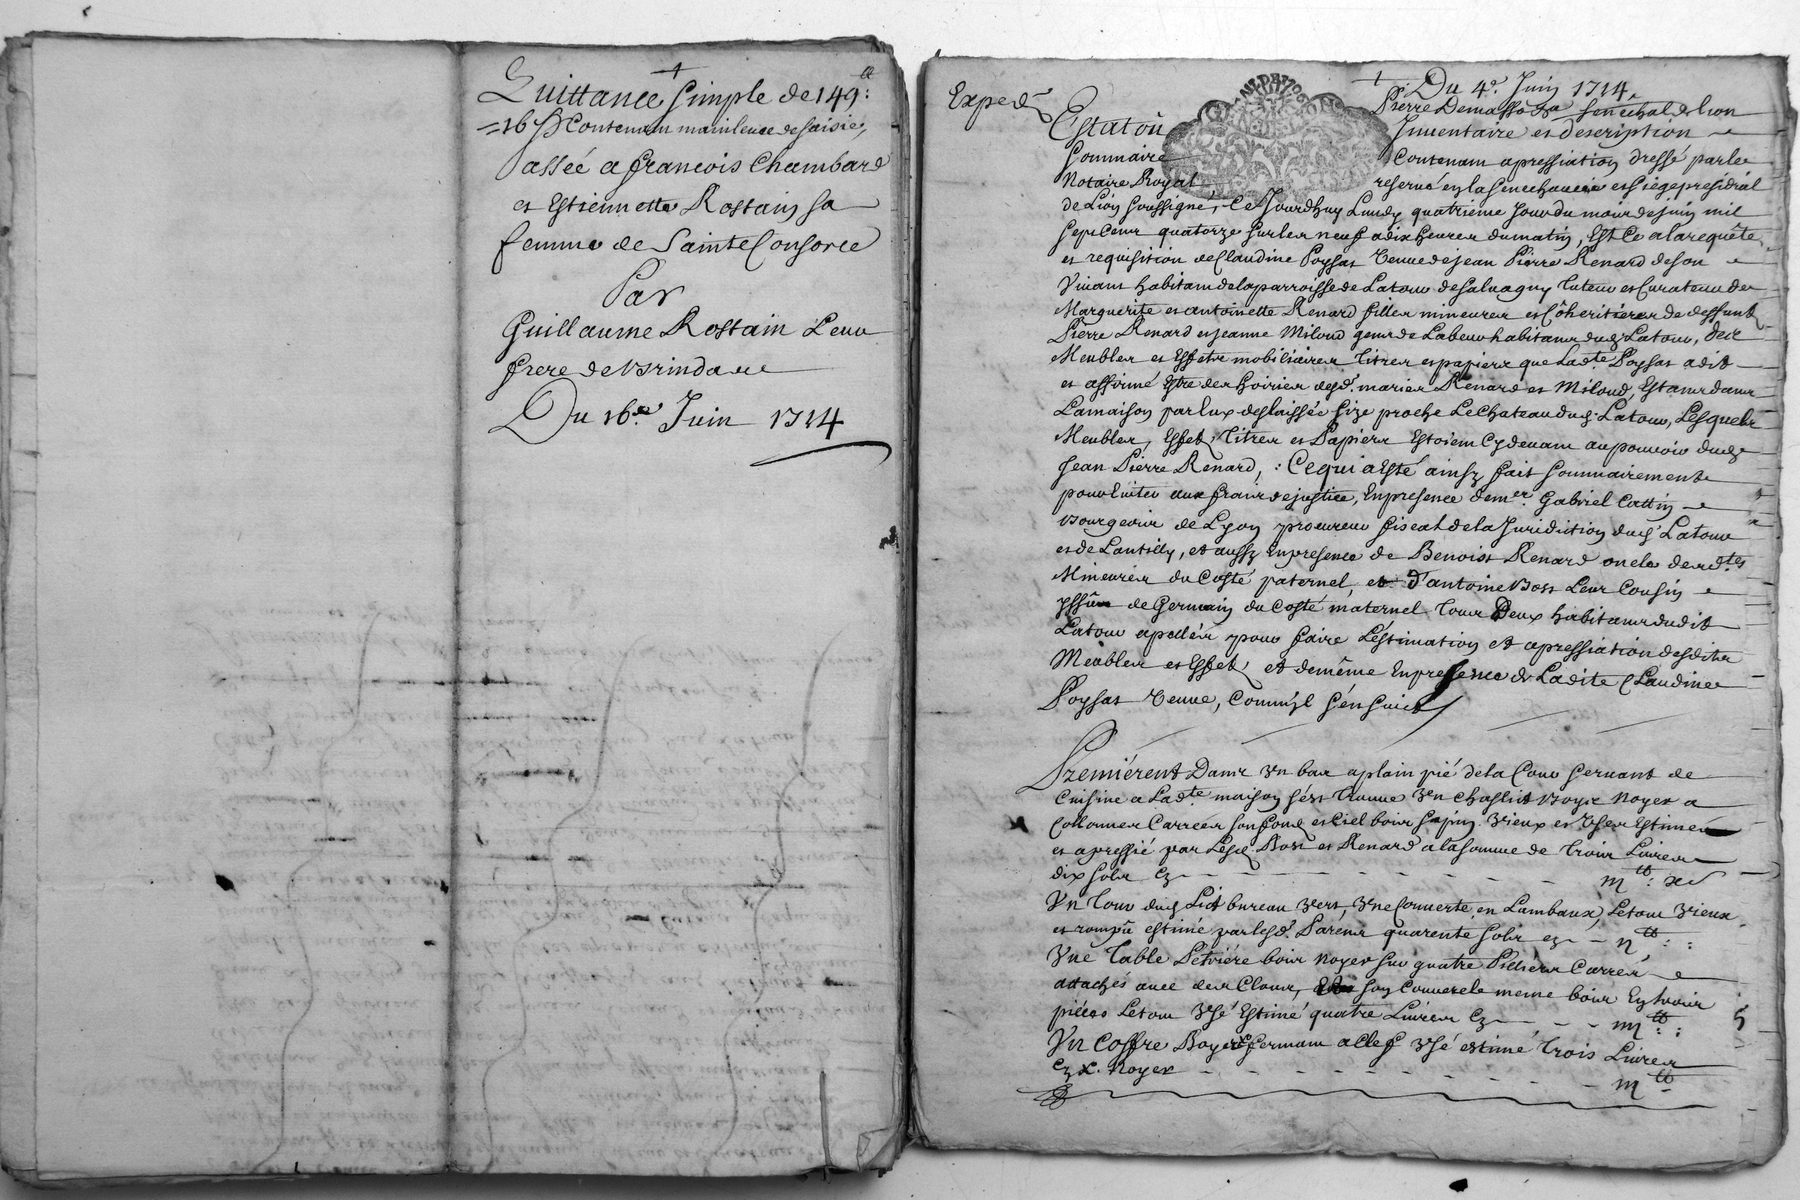 Quittance simple de 149 ₶:
16 s Contenant mainlevée de saisie,
passée a francois Chambard
et Estiennette Rostain sa
femme de Sainte Consorce
Par
Guillaume Rostain Leur
frere de Brindas
Du 16e. Juin 1714
Expedé
Du 4e. Juin 1714
Pierre Demasso sénéchal de Lion
Estat ou Inventaire et description
Sommaire Contenant apressiation dressé par le
Notaire Royal reservé en la senechaucée et siege presidial
de Lion soussigné, Ce Jourdhuy Lundy quatrieme Jour du mois de juin mil
sept Cent quatorze sur les neuf a dix heures du matin, Est Ce a la requête
et requisition de Claudine Poysat veuve de jean Pierre Renard de son
vivant habitant de la parroisse de Latour de Salvagny tuteur et Curateur de
Marguerite et antoinette Renard filles mineures et Cohéritieres de deffunt
Pierre Renard et Jeanne Miloud gens de Labeur habitans dud. Latour, des
Meubles et Effets mobiliaires titres et papiers que Lad.te Poysat a dit
et affirmé Estre des hoiries desd. mariés Renard et Miloud, Estans dans
La maison par Eux deslaissée size proche Le Chateau dud. Latour, Lesquels
Meubles, Effets, titres et Papiers Estoient Cydevant au pouvoir dud.
Jean Pierre Renard, : Ce qui a Esté ainsy fait sommairement
pour Eviter aux frais de justice, En presence de m.er Gabriel Cattin
Bourgeois de Lyon procureur fiscal de la Juridiction dud. Latour
et de Lantilly, et aussy En presence de Benoist Renard oncle desd.tes
Mineures du Costé paternel, et d'antoine Boss Leur Cousin
yssu de Germain du Costé maternel tous Deux habitans dudit
Latour apellés pour faire L'éstimation et apressiation desdits
Meubles et Effets et de même En presence de Ladite Claudine
Poysat veuve, Comm'il s'en suit
Premiérent Dans vn bas a plain pié de la Cour servant de
Cuisine a Lad.te maison s'est trouvé vn chaslit Boys Noyer a
Collonnes Carrées son fond et Ciel bois sapin vieux et vsés Estimé
et apressié par Lesd. Boss et Renard a la somme de trois Livres
dix sols Cy - - - - iij ₶: x s
Vn tour dud. Lict bureau vert, vne Couverte en Lambaux, Le tout vieux
et rompu estimé par lesd. Parens quarente sols cy - - ij ₶: :
Vne Table Pétriére bois Noyer sur quatre Piliers Carrés
attachés avec des Cloux, son Couvercle meme bois En trois
piéces Le tout vsé Estimé quatre Livres Cy - - - iiij ₶: : 5
Vn Coffre Boys fermant a Clef vsé estimé trois Livres
Cy X. Noyer - - - - iij ₶